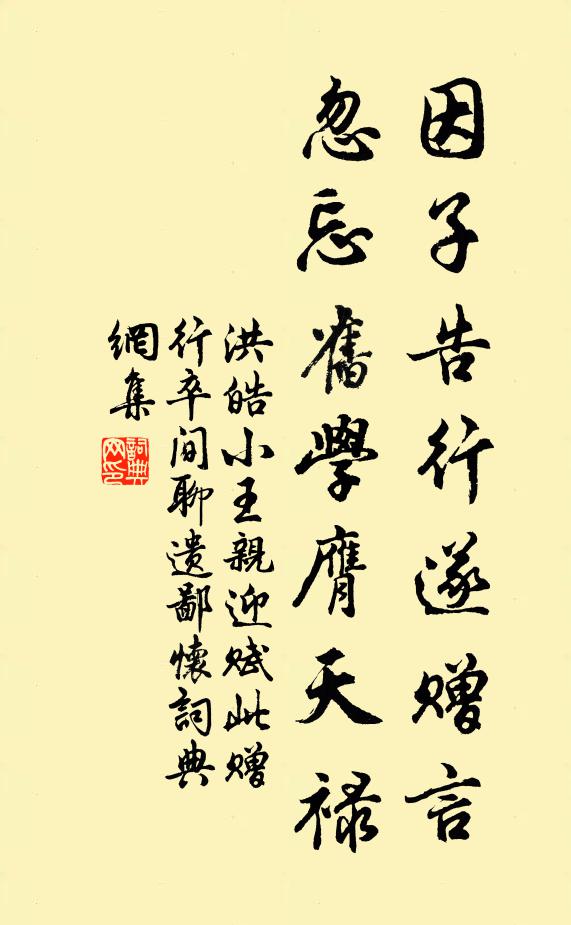 因子告行遂赠言
忽忘舊學膺天禄
洪皓小王親迎赋此赠
行卒间聊遗鄙懷詞典
網集
詞典
网印